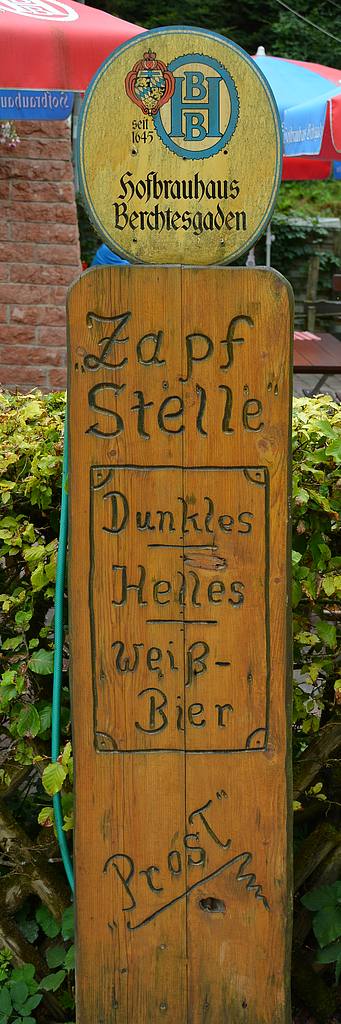 seit
1645
HBB
Hofbrauhaus
Berchtesgaden
„Zapf
Stelle“
Dunkles
Helles
Weiß-
Bier
„Prost“